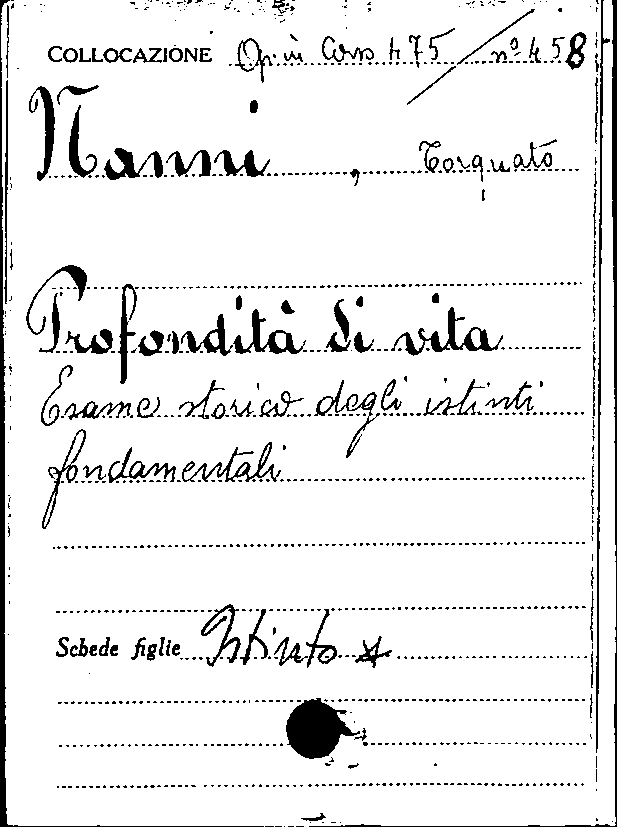 COLLOCAZIONE Op. in Cors 475 / nº 458
Nanni, Torquato
Profondità di vita
Esame storico degli istinti
fondamentali
Schede figlie Istinto *